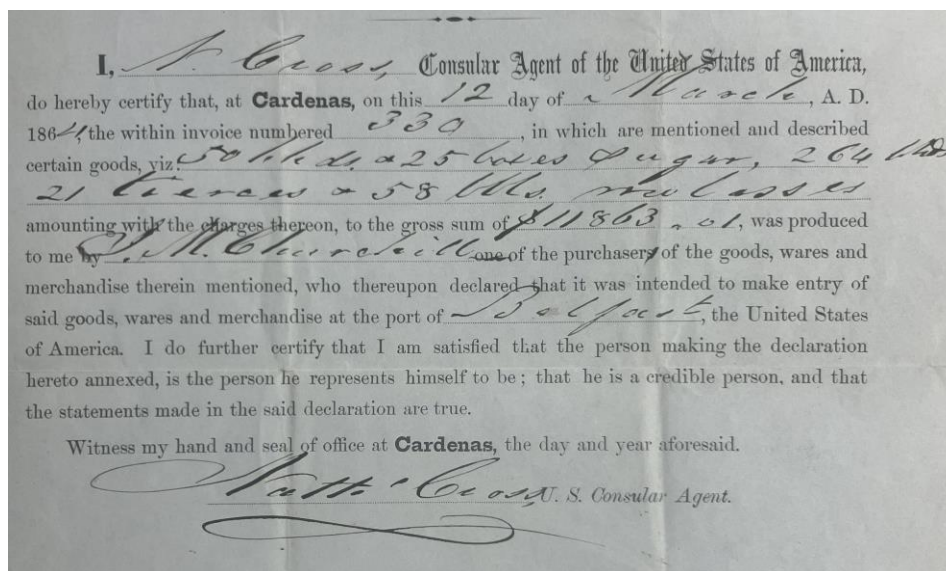 I, N. Cross, Consular Agent of the United States of America,
do hereby certify that, at Cardenas, on this 12 day of March, A. D.
1864, the within invoice numbered 330, in which are mentioned and described
certain goods, viz: 50 hhds. & 25 boxes Sugar, 264 hhds
21 tierces & 58 bbls. molasses
amounting with the charges thereon, to the gross sum of $11863.01, was produced
to me by M. Churchill one of the purchasers of the goods, wares and
merchandise therein mentioned, who thereupon declared that it was intended to make entry of
said goods, wares and merchandise at the port of Belfast, the United States
of America. I do further certify that I am satisfied that the person making the declaration
hereto annexed, is the person he represents himself to be; that he is a credible person, and that
the statements made in the said declaration are true.
Witness my hand and seal of office at Cardenas, the day and year aforesaid.
Cross, U. S. Consular Agent.